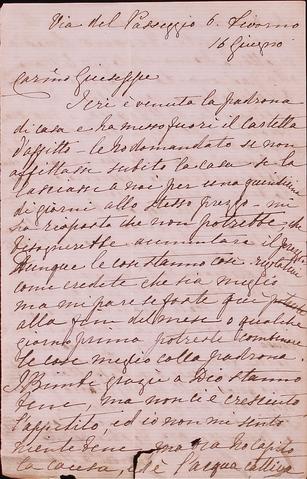 Via del Passeggio 6. Livorno
16 Giugno
Carino Giuseppe
Ieri è venuta la padrona
di casa e ha messo fuori il cartello
d'affitto - le ho domandato se non
affittasse subito la casa se la
lasciasse a noi per una quindicina
di giorni allo stesso prezzo - mi
ha risposto che non potrebbe, che
bisognerebbe aumentare il prezzo
Dunque le cose stanno così regolatevi
come credete che sia meglio
ma mi pare se foste qui
alla fine del mese o qualche
giorno prima potreste combinare
le cose meglio colla padrona
I Bimbi grazie a Dio stanno
bene, ma non c'è cresciuto
l'appetito, ed io non mi sento
niente bene - ma ho capito
la causa, è l'acqua cattiva